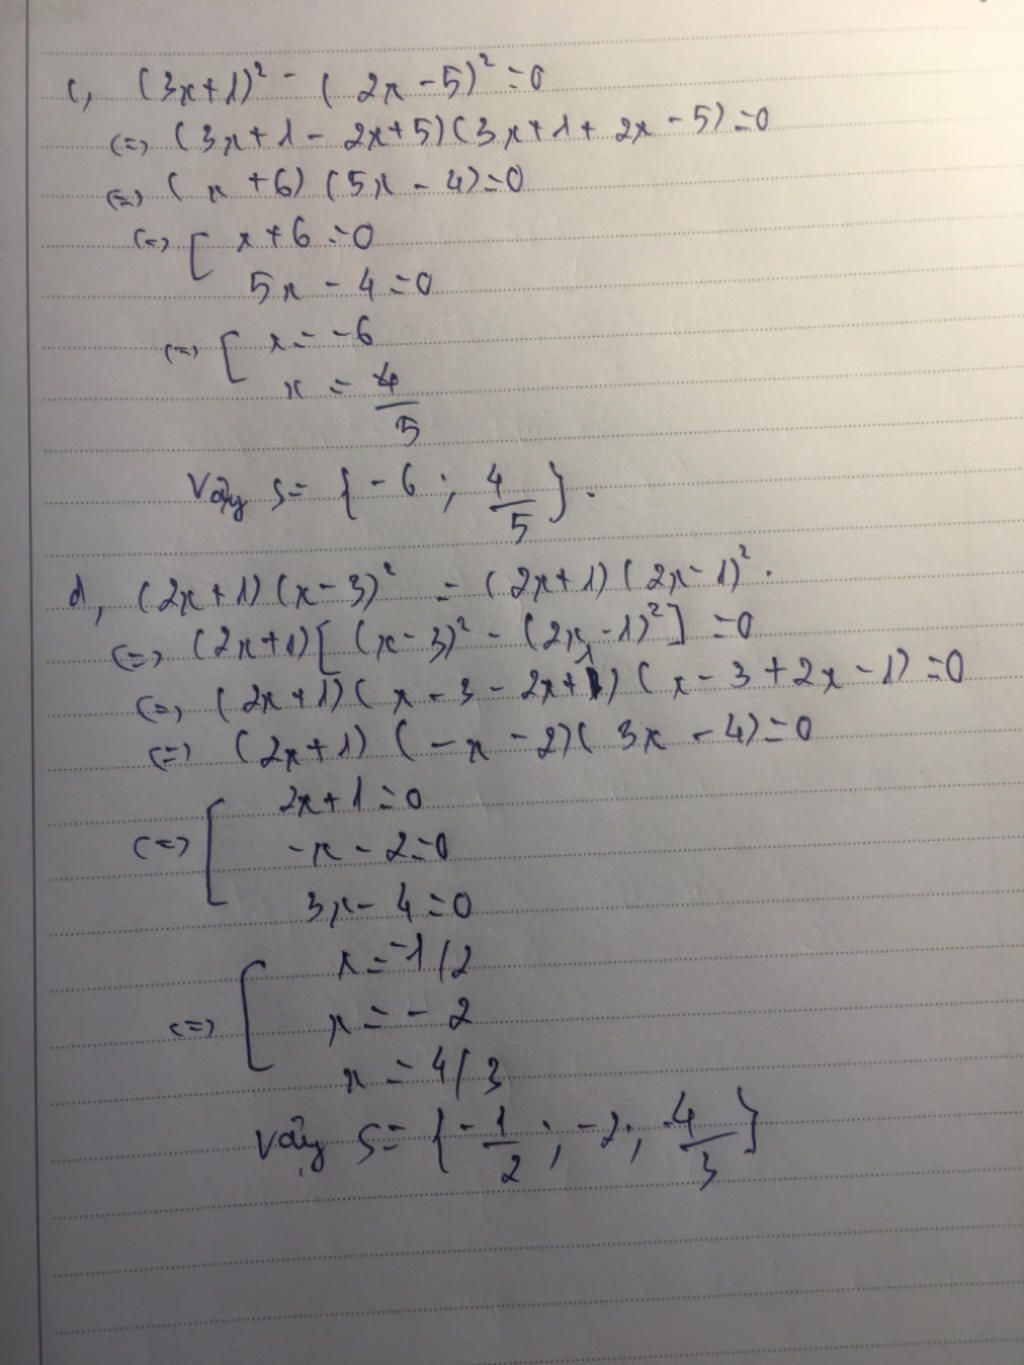 c, (3x+1)² - (2x-5)² = 0
(=) (3x+1-2x+5)(3x+1+2x-5)=0
(=) (x+6)(5x-4)=0
(=) [ x+6=0
5x-4=0
(=) [ x=-6
x = 4/5
Vậy S= {-6; 4/5}.
d, (2x+1)(x-3)² = (2x+1)(2x-1)².
(=) (2x+1)[(x-3)²-(2x-1)²]=0
(=) (2x+1)(x-3-2x+1)(x-3+2x-1)=0
(=) (2x+1)(-x-2)(3x-4)=0
(=) [ 2x+1=0
-x-2=0
3x-4=0
(=) [ x=-1/2
x=-2
x=4/3
Vậy S= {-1/2; -2; 4/3}